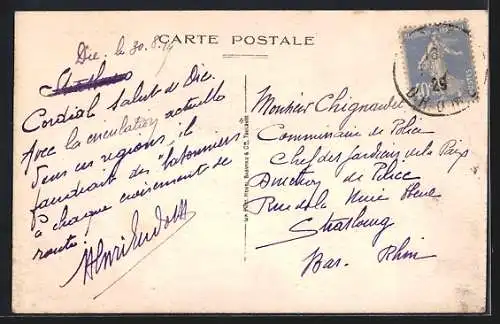 CARTE POSTALE
Die. le 30.8.
Cordial salut de Die.
Avec la circulation actuelle
dans ces régions, il
faudrait des "batonniers"
à chaque croisement de
route!
Henri
Monsieur
Commissaire de Police
Chef des Gardiens de la Paix
Direction de Police
Rue de la Nuée Bleue
Strasbourg
Bas. Rhin
29